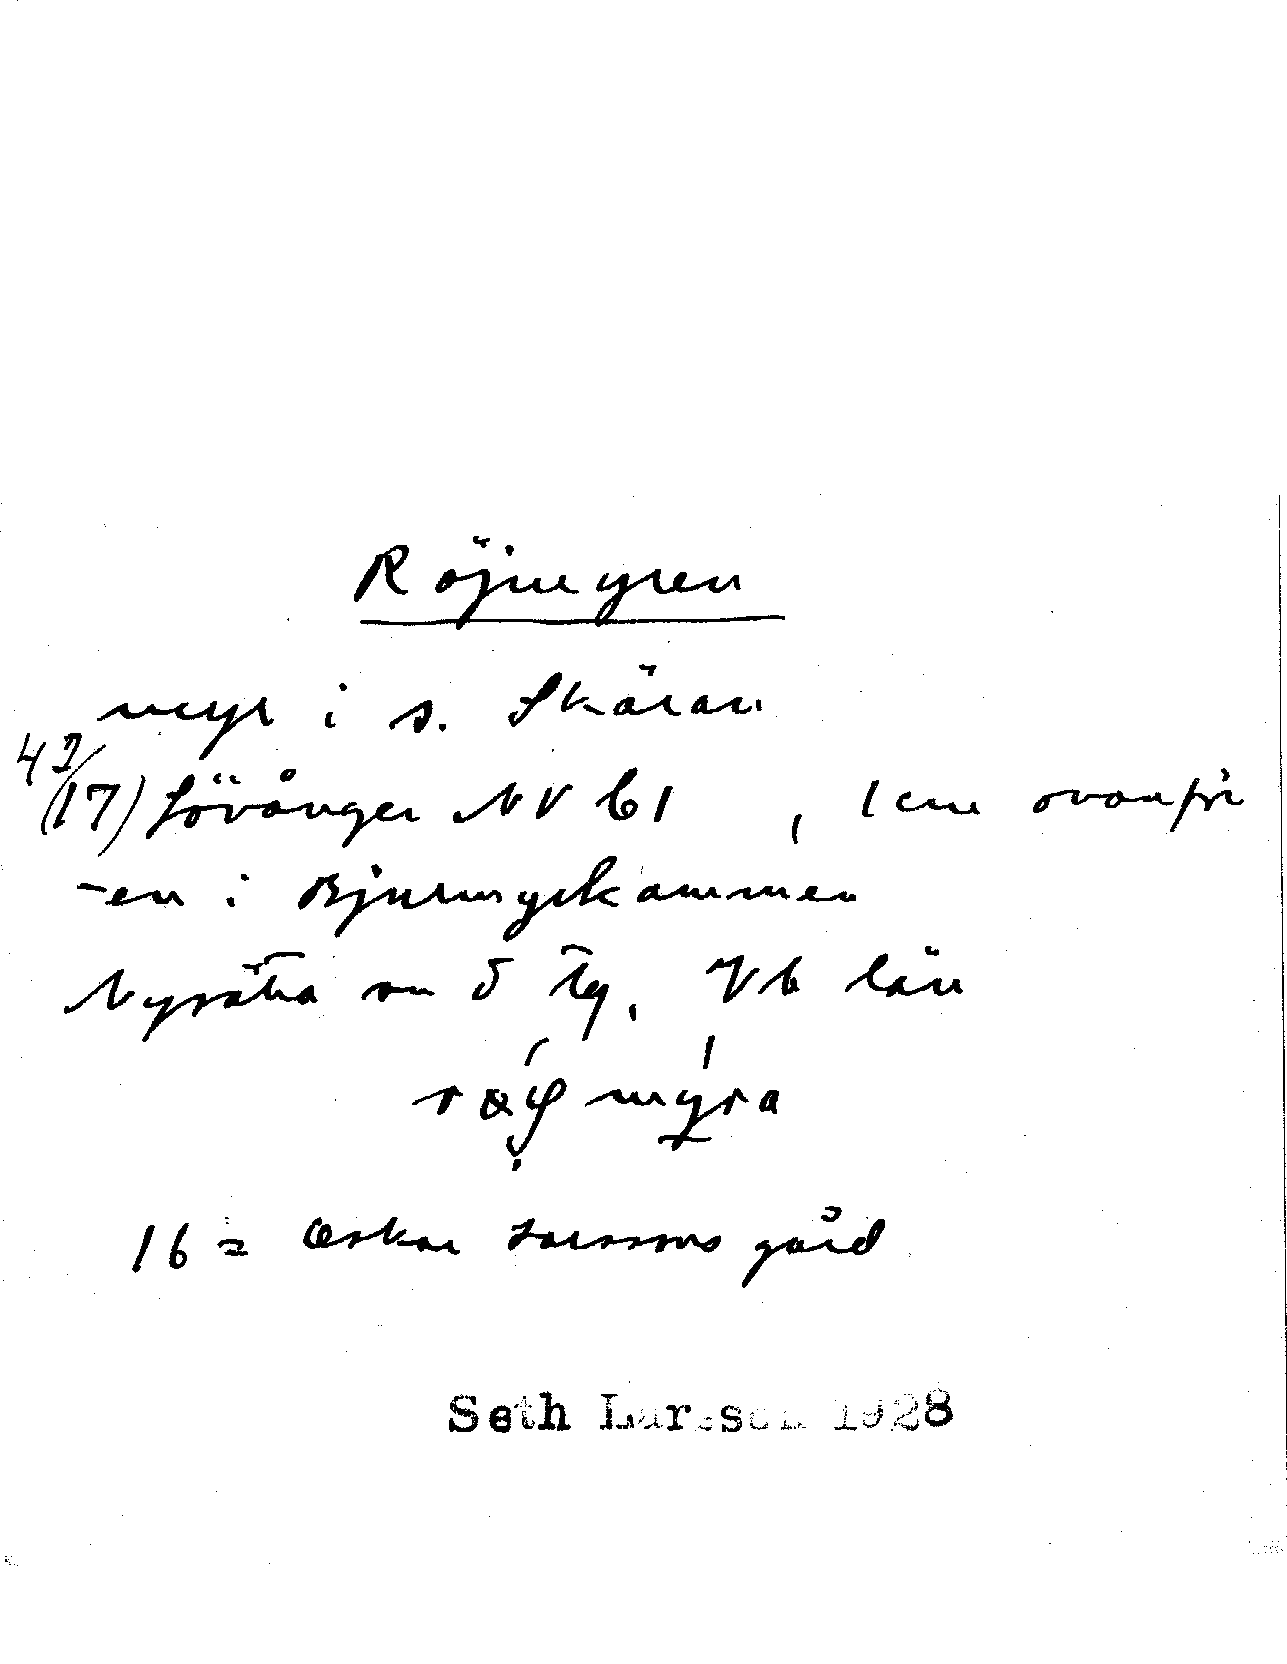 Röjmyren
myr i s. Skäran
42/
(17) Lövånger NV b1 , 1 cm ovanför
-en i Bjurmyrkammen
Nysätra sn 5 tg. Vb län
16 = Oskar Larssons gård
Seth Larsson 1928